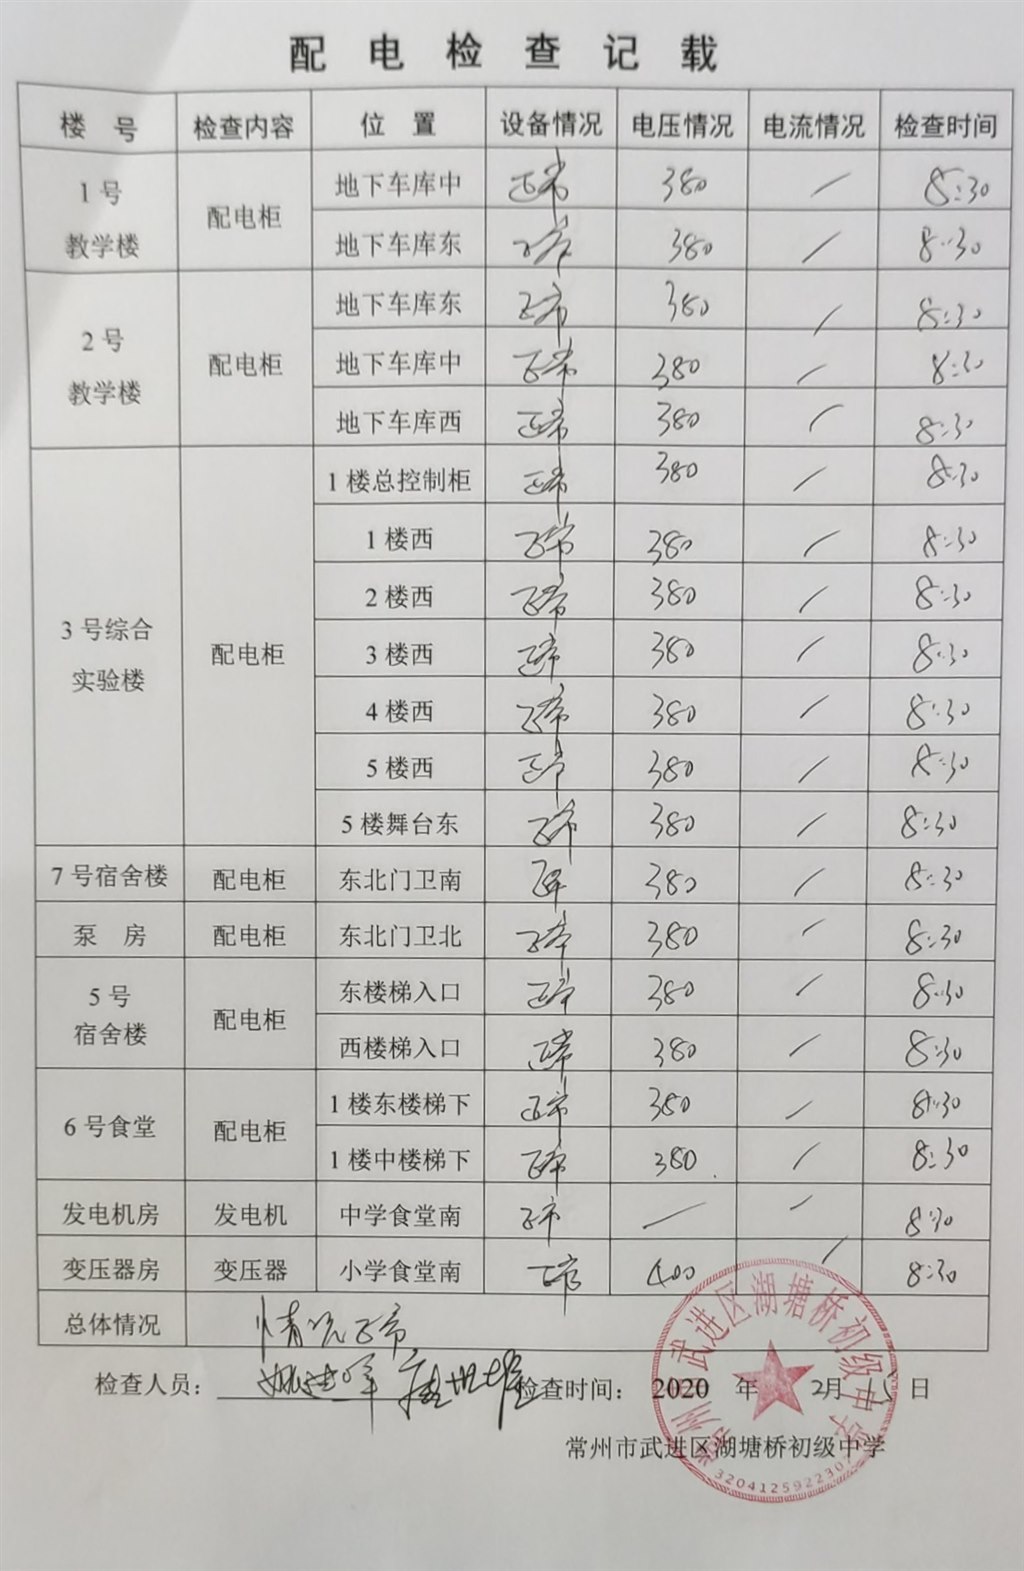 配电检查记载
楼 号 检查内容 位 置 设备情况 电压情况 电流情况 检查时间
1号 教学楼 配电柜 地下车库中 正常 380 / 8:30
地下车库东 正常 380 / 8:30
2号 教学楼 配电柜 地下车库东 正常 380 / 8:30
地下车库中 正常 380 / 8:30
地下车库西 正常 380 / 8:30
3号综合 实验楼 配电柜 1楼总控制柜 正常 380 / 8:30
1楼西 正常 380 / 8:30
2楼西 正常 380 / 8:30
3楼西 正常 380 / 8:30
4楼西 正常 380 / 8:30
5楼西 正常 380 / 8:30
5楼舞台东 正常 380 / 8:30
7号宿舍楼 配电柜 东北门卫南 正常 380 / 8:30
泵 房 配电柜 东北门卫北 正常 380 / 8:30
5号 宿舍楼 配电柜 东楼梯入口 正常 380 / 8:30
西楼梯入口 正常 380 / 8:30
6号食堂 配电柜 1楼东楼梯下 正常 380 / 8:30
1楼中楼梯下 正常 380 / 8:30
发电机房 发电机 中学食堂南 正常 / / 8:30
变压器房 变压器 小学食堂南 正常 400 / 8:30
总体情况 情况正常
检查人员： 检查时间： 2020 年 2月 15日
常州市武进区湖塘桥初级中学
常州市武进区湖塘桥初级中学
3204125922301